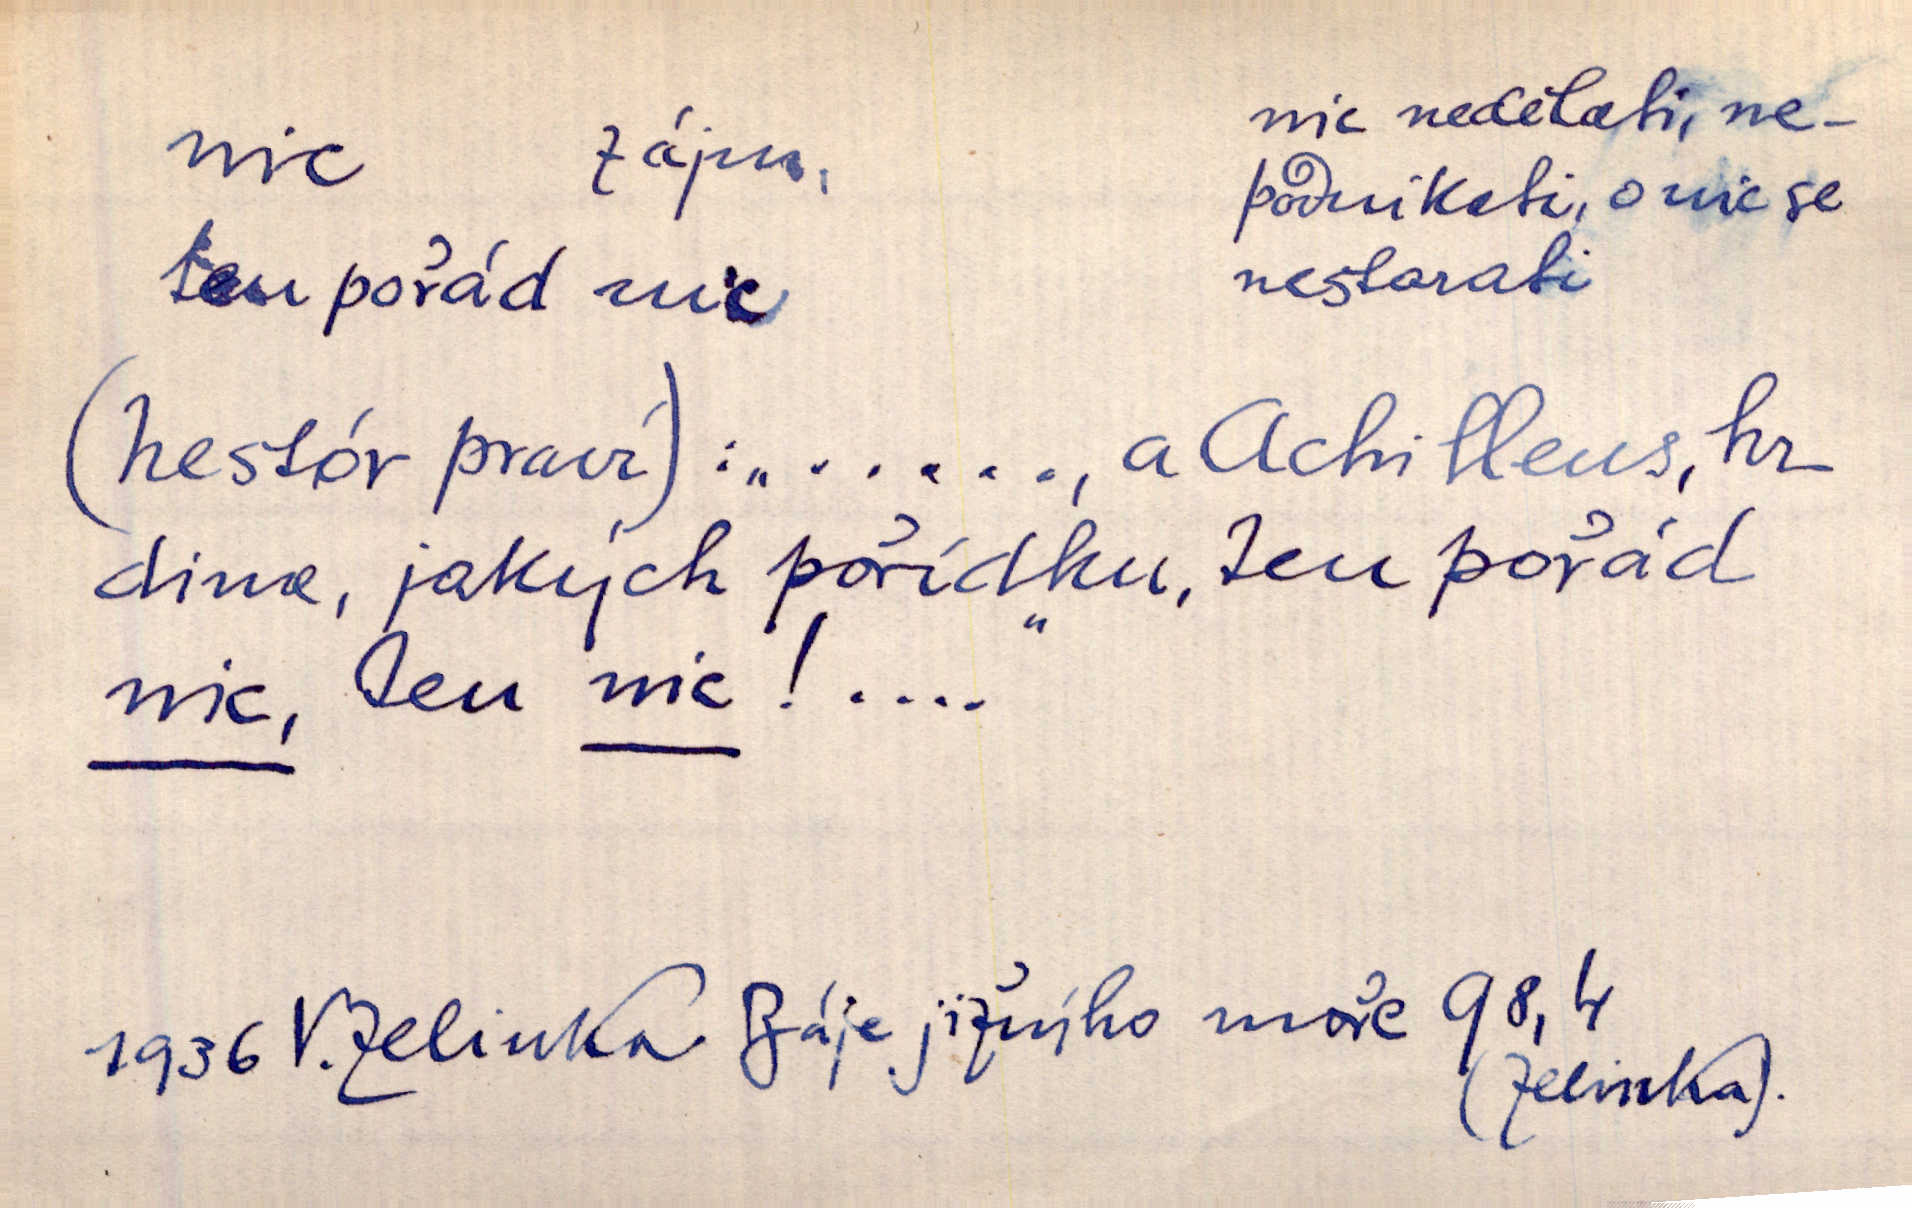 nic zájm.
nic nedělati, ne-
podnikati, o nic se
nestarati
ten pořád nic
(Nestór praví): „......, a Achilleus, hr-
dina, jakých pořídku, ten pořád
nic, ten nic!....“
1936 V. Zelinka Báje jižného moře 98, 4
(Zelinka).